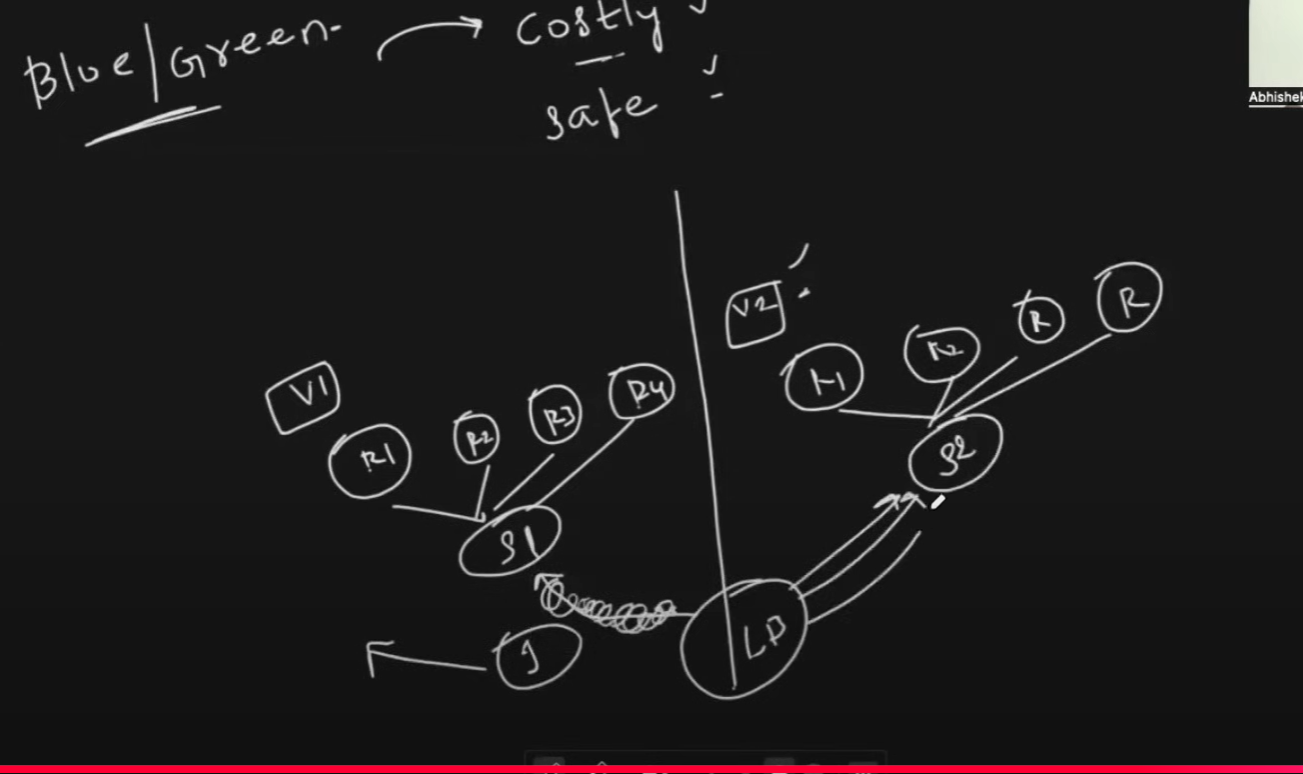 Blue/Green → Costly ✓
safe ✓
Abhishek
V2
V1
R1 R2 R3 R4
R1 R2 R R
S1
S2
LB